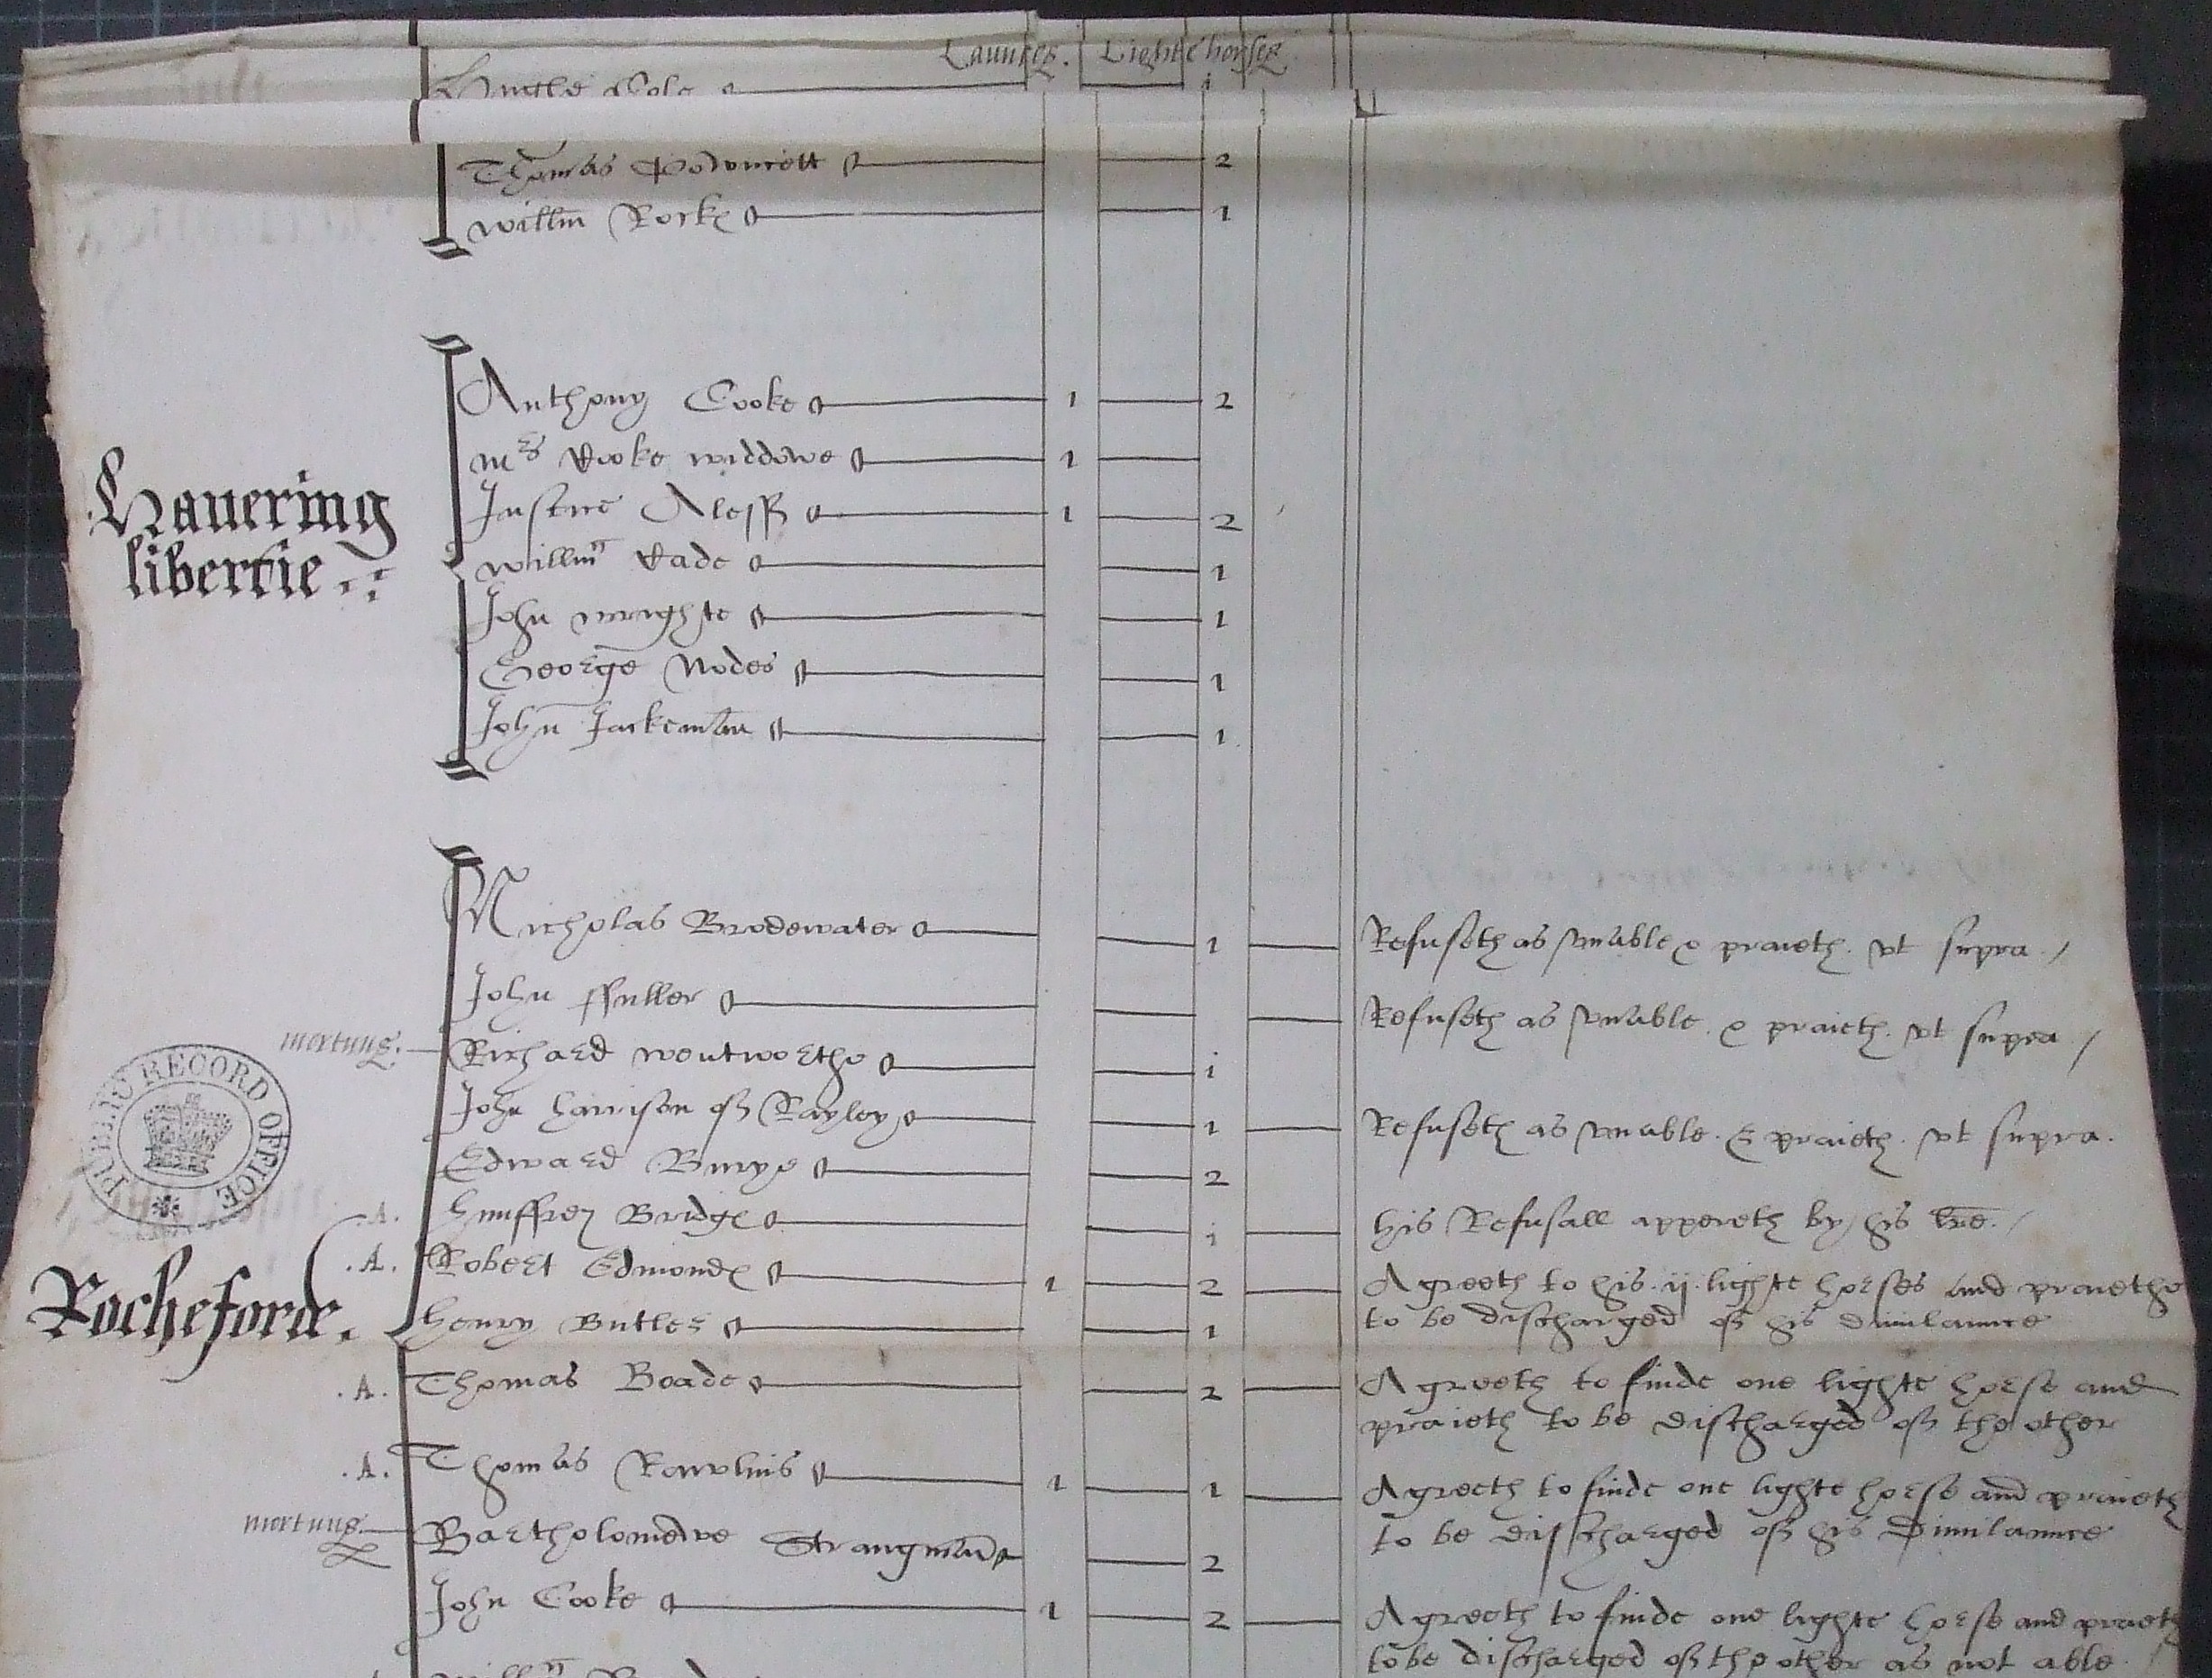 Launces. Lighte horses
Thomas 2
Willm Rocke 1
Anthony Cooke 1 2
Mrs Cooke widdowe 1
Justice 1 2
Hauering
libertie
Willm Cade 1
John wrighte 1
George Nodes 1
John Jackeman 1
Nicholas Brodewater 1 Refuseth as vnable & praieth vt supra /
John ffuller Refuseth as vnable & praieth vt supra /
mortuus. Richard Wentworthe i
John Harrison of Rayley 1 Refuseth as vnable & praieth vt supra.
Edward Burye 2
.A. Humffrey Bridge i his Refusall appereth by his lre. /
.A. Robert Edmondes 1 2 Agreeth to his .ij. lighte horses and praiethe
Rocheforde. Henry Butler 1 to be discharged of his dimilaunce
.A. Thomas Boade 2 Agreeth to finde one lighte horse and
praieth to be discharged of the other
.A. Thomas Rawlins 1 1 Agreeth to finde one lighte horse and praieth
to be discharged of his Dimilaunce
mortuus. Bartholomewe Strangman 2
John Cooke 1 2 Agreeth to finde one lighte horse and praieth
to be discharged of the other as not able
PUBLIC RECORD OFFICE